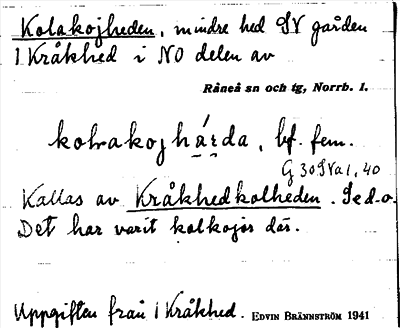 Kolakojheden, mindre hed SV gården
1 Kråkhed i NO delen av
Råneå sn och tg, Norrb. l.
kolrakojhárda, bf. fem.
G 30 SVa1, 40
Kallas av Kråkhedkolheden. Se d.o.
Det har varit kolkojor där.
Uppgiften från 1 Kråkhed. EDVIN BRÄNNSTRÖM 1941